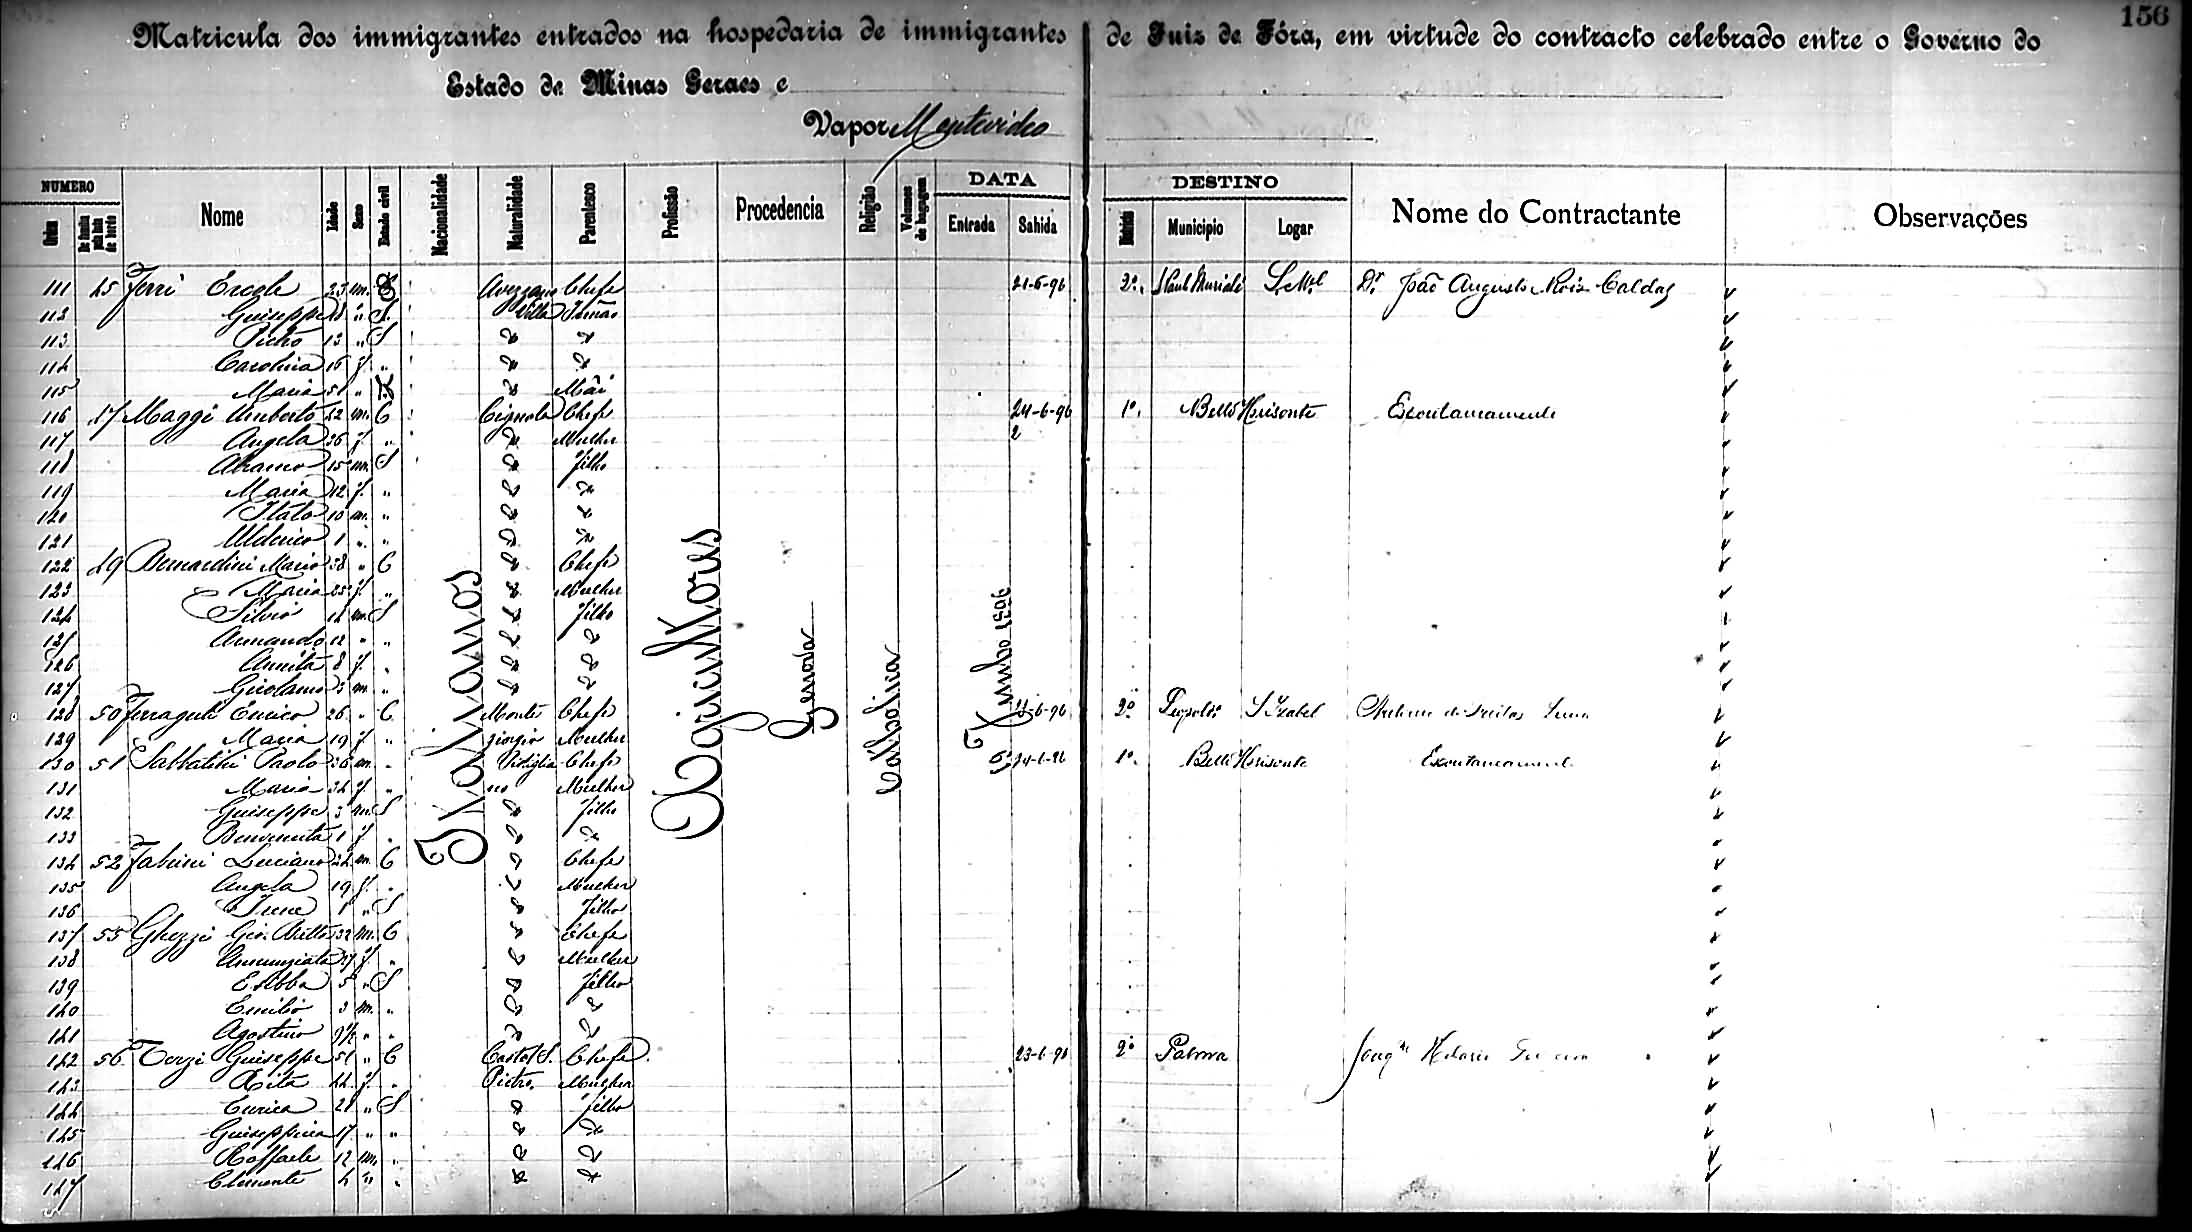 156
Matricula dos immigrantes entrados na hospedaria de immigrantes de Juiz de Fóra, em virtude do contracto celebrado entre o Governo do
Estado de Minas Geraes e
Vapor Montevideo
NUMERO DATA DESTINO
Ordem Nome Idade Sexo Estado civil Nacionalidade Naturalidade Parentesco Profissão Procedencia Religião Volumes de bagagem Entrada Sahida Municipio Logar Nome do Contractante Observações
Italianos Agricultores Genova Catholica Junho 1896
111 45 Ferri Ercole 23 m. Avezzano Chefe 21-6-96 2º. S. Paulo Muriahé Dr. João Augusto Caldas
112 Guiseppe m. S. Villa Irmão
113 Pietro 13 " S
114 Carolina 16 f. "
115 Maria 51 " Mãi
116 47 Maggi Umberto 42 m. C Cignola Chefe 24-6-96 1º. Bello Horisonte Expontaneamente
117 Angela 36 f. " Mulher
118 Abramo 15 m. S Filho
119 Maria 12 f. "
120 Italo 10 m. "
121 1 " "
122 49 Bernardini Mario 38 " C Chefe
123 Maria 25 f. " Mulher
124 Silvio 14 m. S Filho
125 Armando 12 " "
126 Annita 8 f. "
127 Girolamo 3 m. "
128 50 Ferraguti Enrico 26 " C Monte Chefe 2º S. Izabel
129 Maria 19 f. " Giorgio Mulher
130 51 Sabbatini Paolo 36 m. " Chefe 24-6-96 1º. Bello Horisonte Expontaneamente
131 Maria 34 f. " Mulher
132 Guiseppe 3 m. S Filho
133 Benvenuta 1 f. "
134 52 Fabrini Luciano 24 m. C Chefe
135 Angela 19 f. " Mulher
136 Irene 1 " S Filho
137 55 Ghezzi Gio. 32 m. C Chefe
138 Annunziata 27 f. " Mulher
139 5 " S Filho
140 Emilio 3 m. "
141 Agostino " "
142 56 Terzi Guiseppe 51 " C Castel S. Chefe 23-6-96 2º Palma
143 Rita 44 f. " Pietro. Mulher
144 Enrica 21 " S Filho
145 Guiseppina 17 " "
146 Raffaele 12 m. "
147 Clemente 4 " "